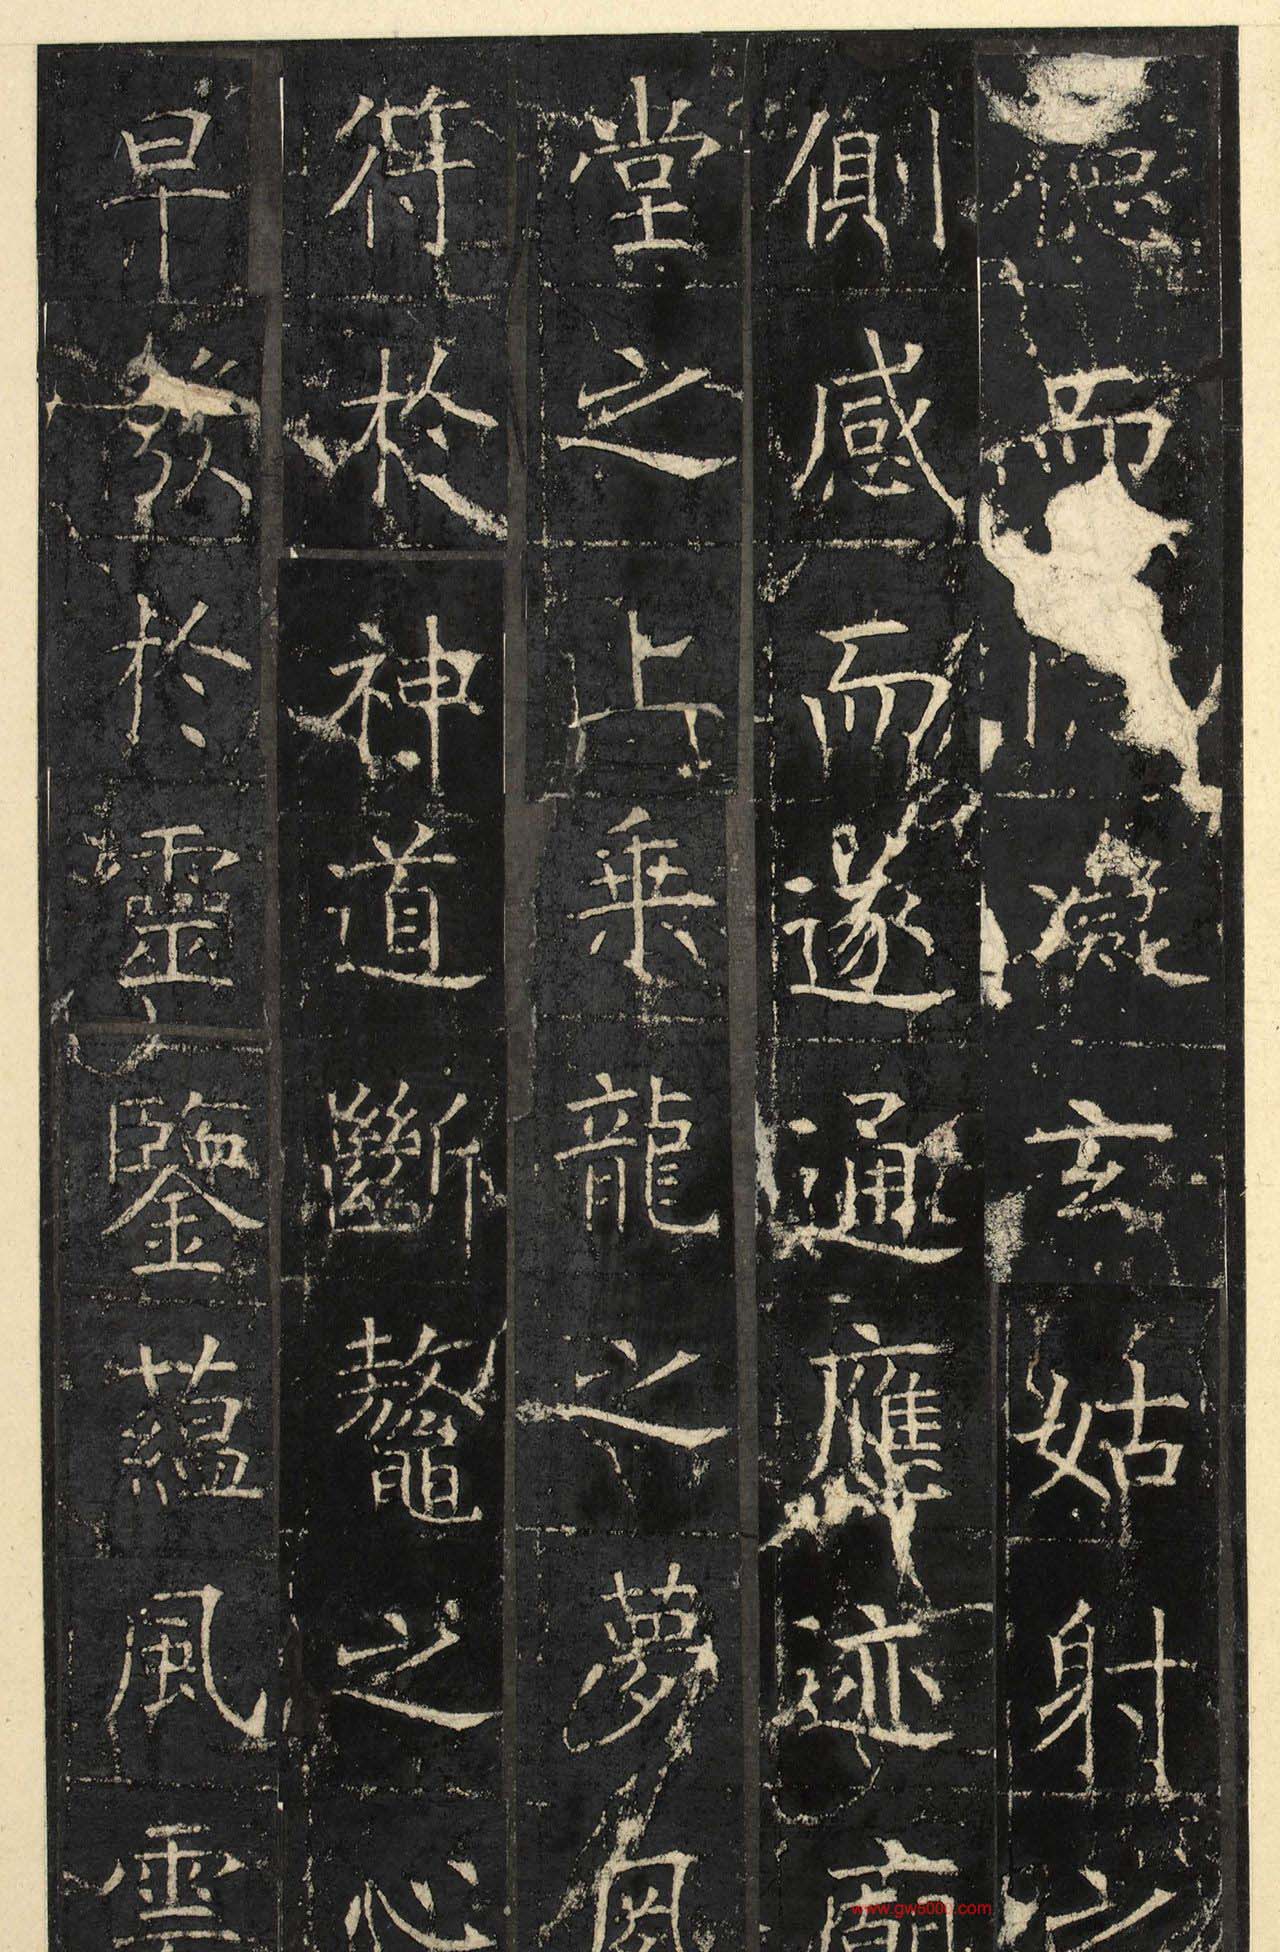 而凝玄姑射之
側感而遂通應迹廟
堂之上乘龍之夢夙
符於神道斷鼇之心
早發於靈鑒蘊風雲
www.gw5000.com